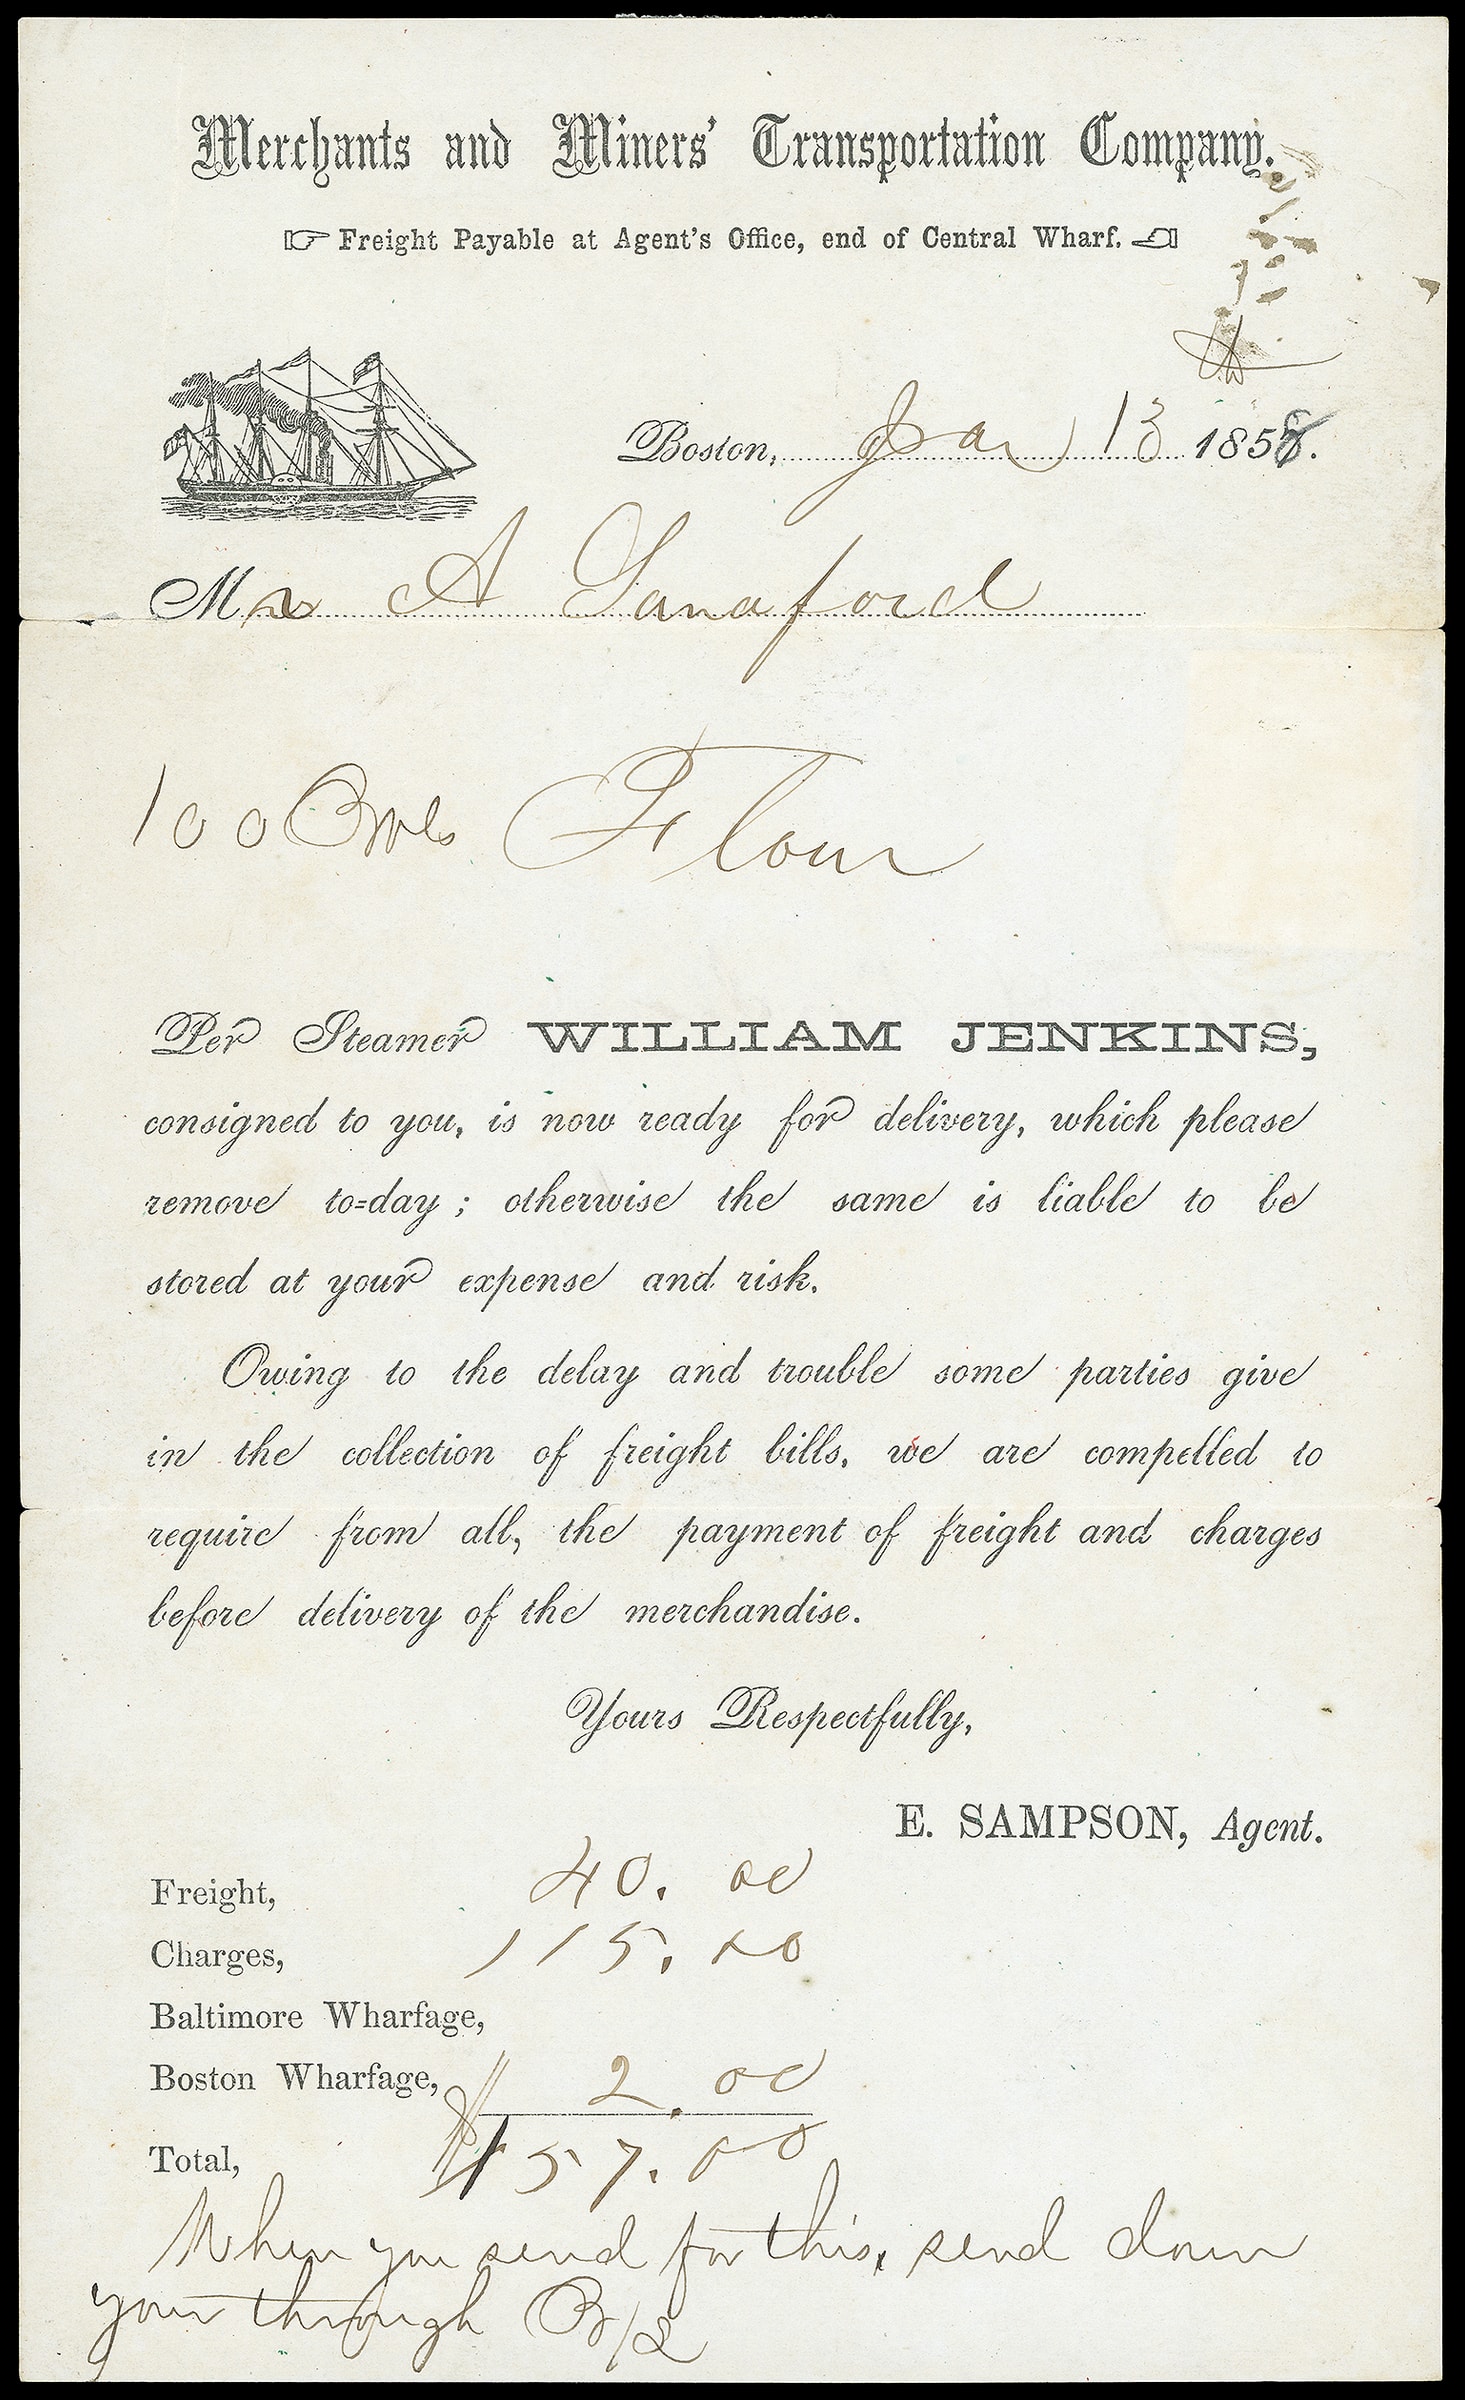 Merchants and Miners' Transportation Company.
☞ Freight Payable at Agent's Office, end of Central Wharf. ☜
Boston, Jan 13 1858.
Mr A Sanaford
100 Brls Flour
Per Steamer WILLIAM JENKINS,
consigned to you, is now ready for delivery, which please
remove to=day; otherwise the same is liable to be
stored at your expense and risk.
Owing to the delay and trouble some parties give
in the collection of freight bills, we are compelled to
require from all, the payment of freight and charges
before delivery of the merchandise.
Yours Respectfully,
E. SAMPSON, Agent.
Freight, 40. 00
Charges, 115. 00
Baltimore Wharfage,
Boston Wharfage, 2. 00
Total, $157. 00
When you send for this, send down
your through B/L